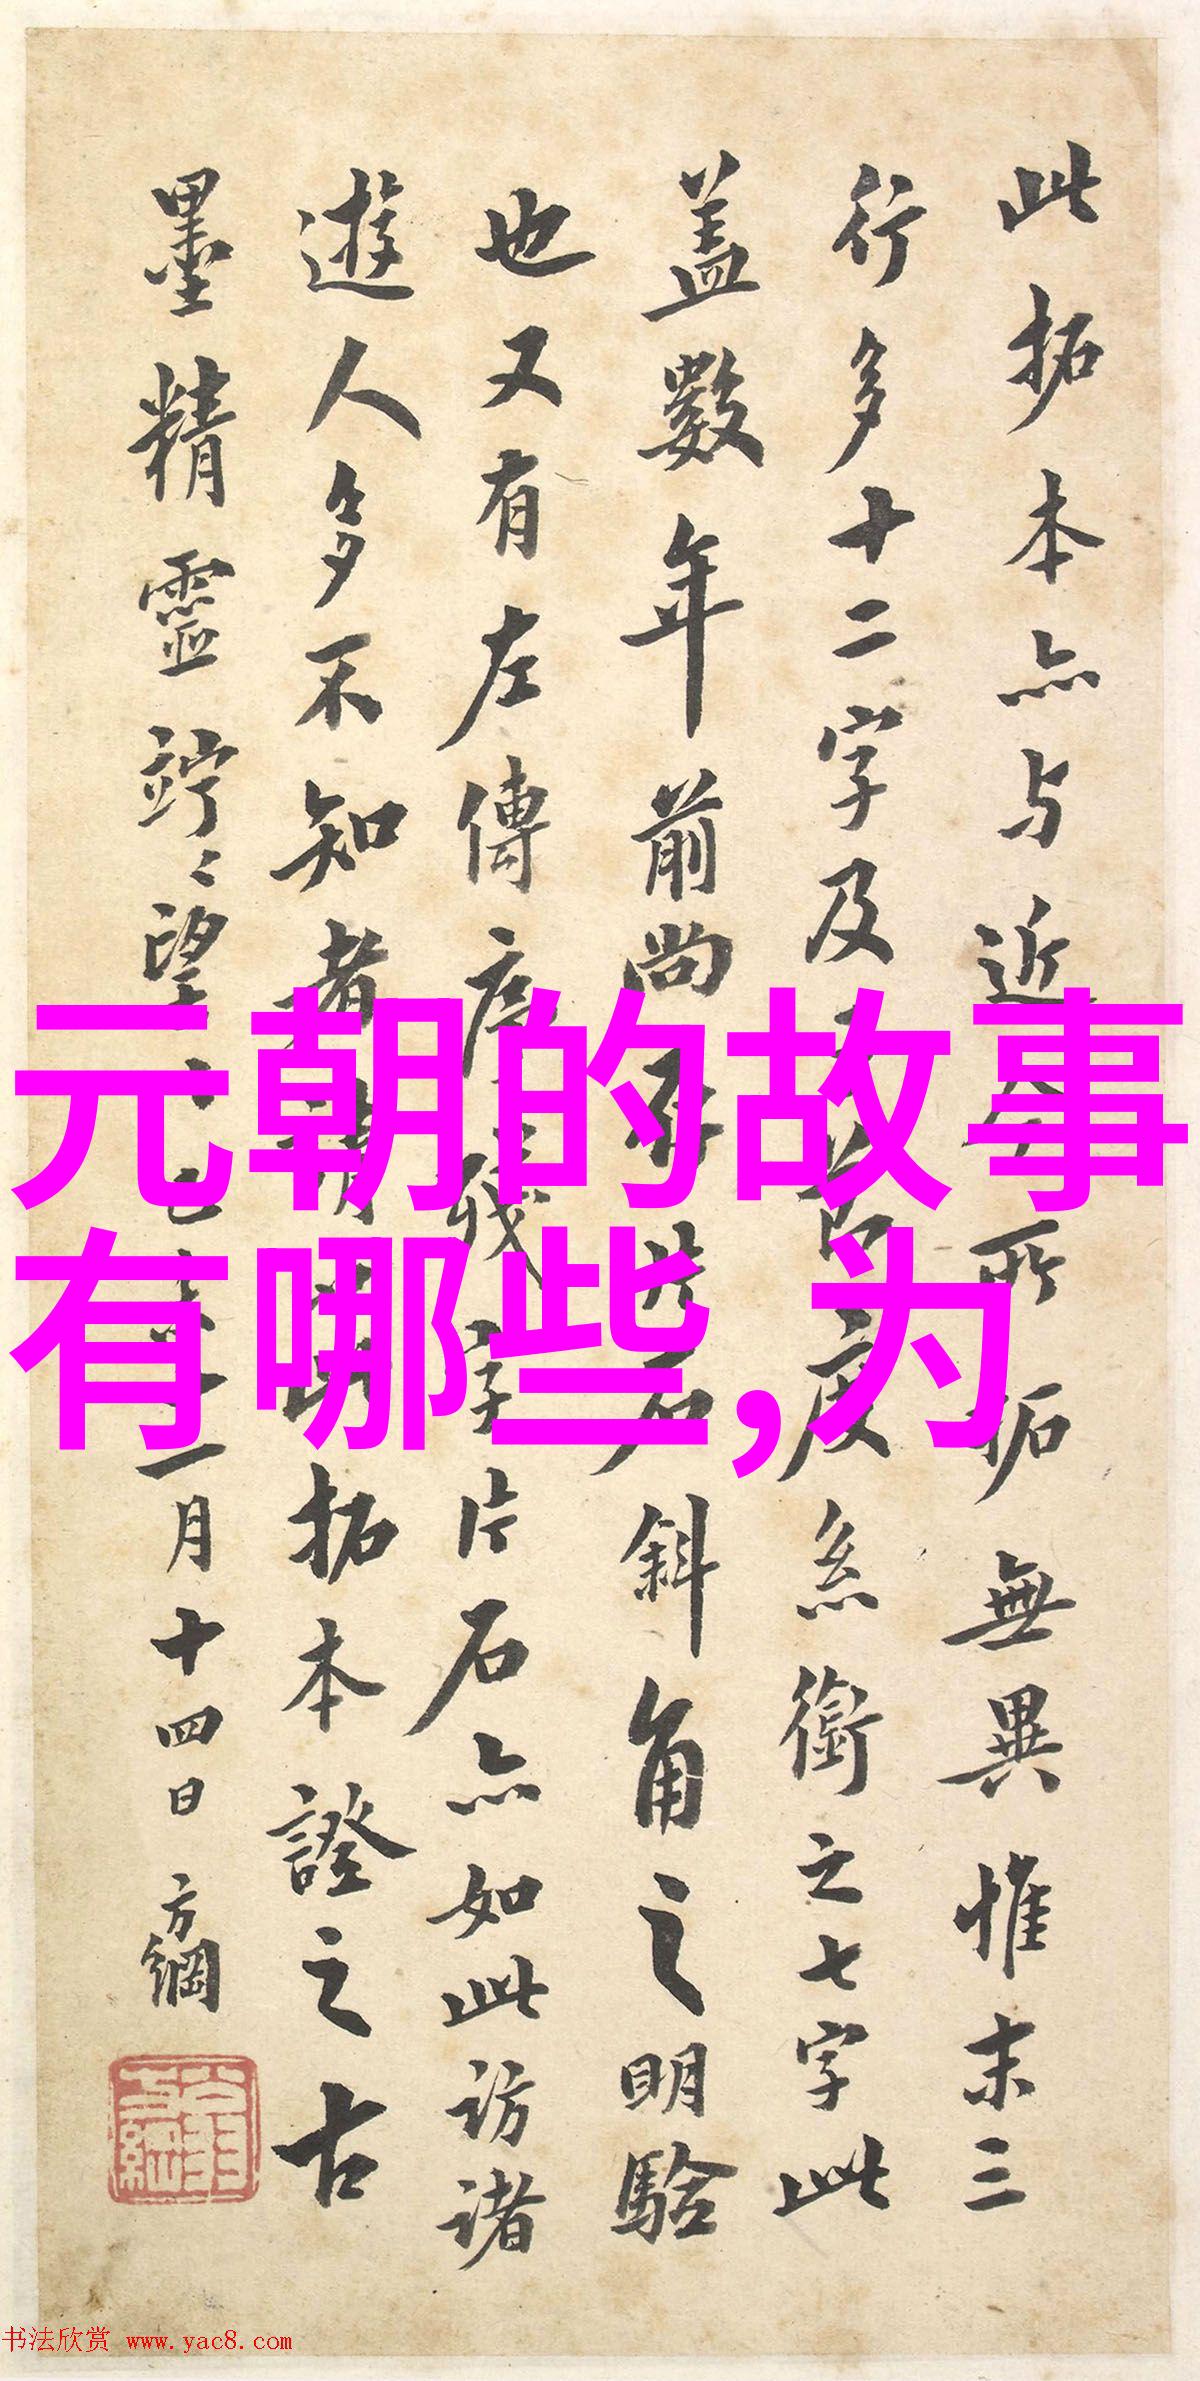 元朝的故事
有哪些,为
此拓本亦与近今所拓無異惟末三
行多十二字及度系銜之七字此
蓋數年前尚存片石斜角之明驗
也又有左傳度殘字片石亦如此訪諸
遊人多不知者拓本證之古
墨精靈竚〻望一月十四日方綱
翁方綱
书法欣赏 www.yac8.com